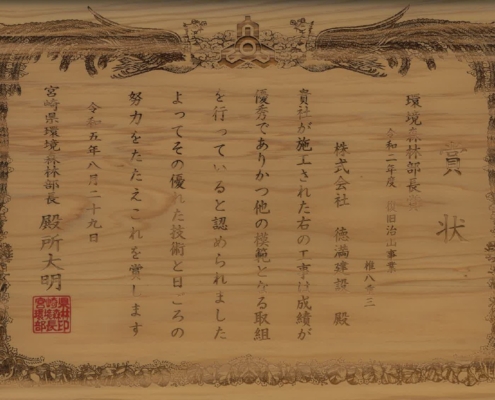 賞状
環境森林部長賞
令和二年度 復旧治山事業
椎八重三
株式会社 徳満建設 殿
貴社が施工された右の工事は成績が
優秀でありかつ他の模範となる取組
を行っていると認められました
よってその優れた技術と日ごろの
努力をたたえこれを賞します
令和五年八月二十九日
宮崎県環境森林部長 殿所大明